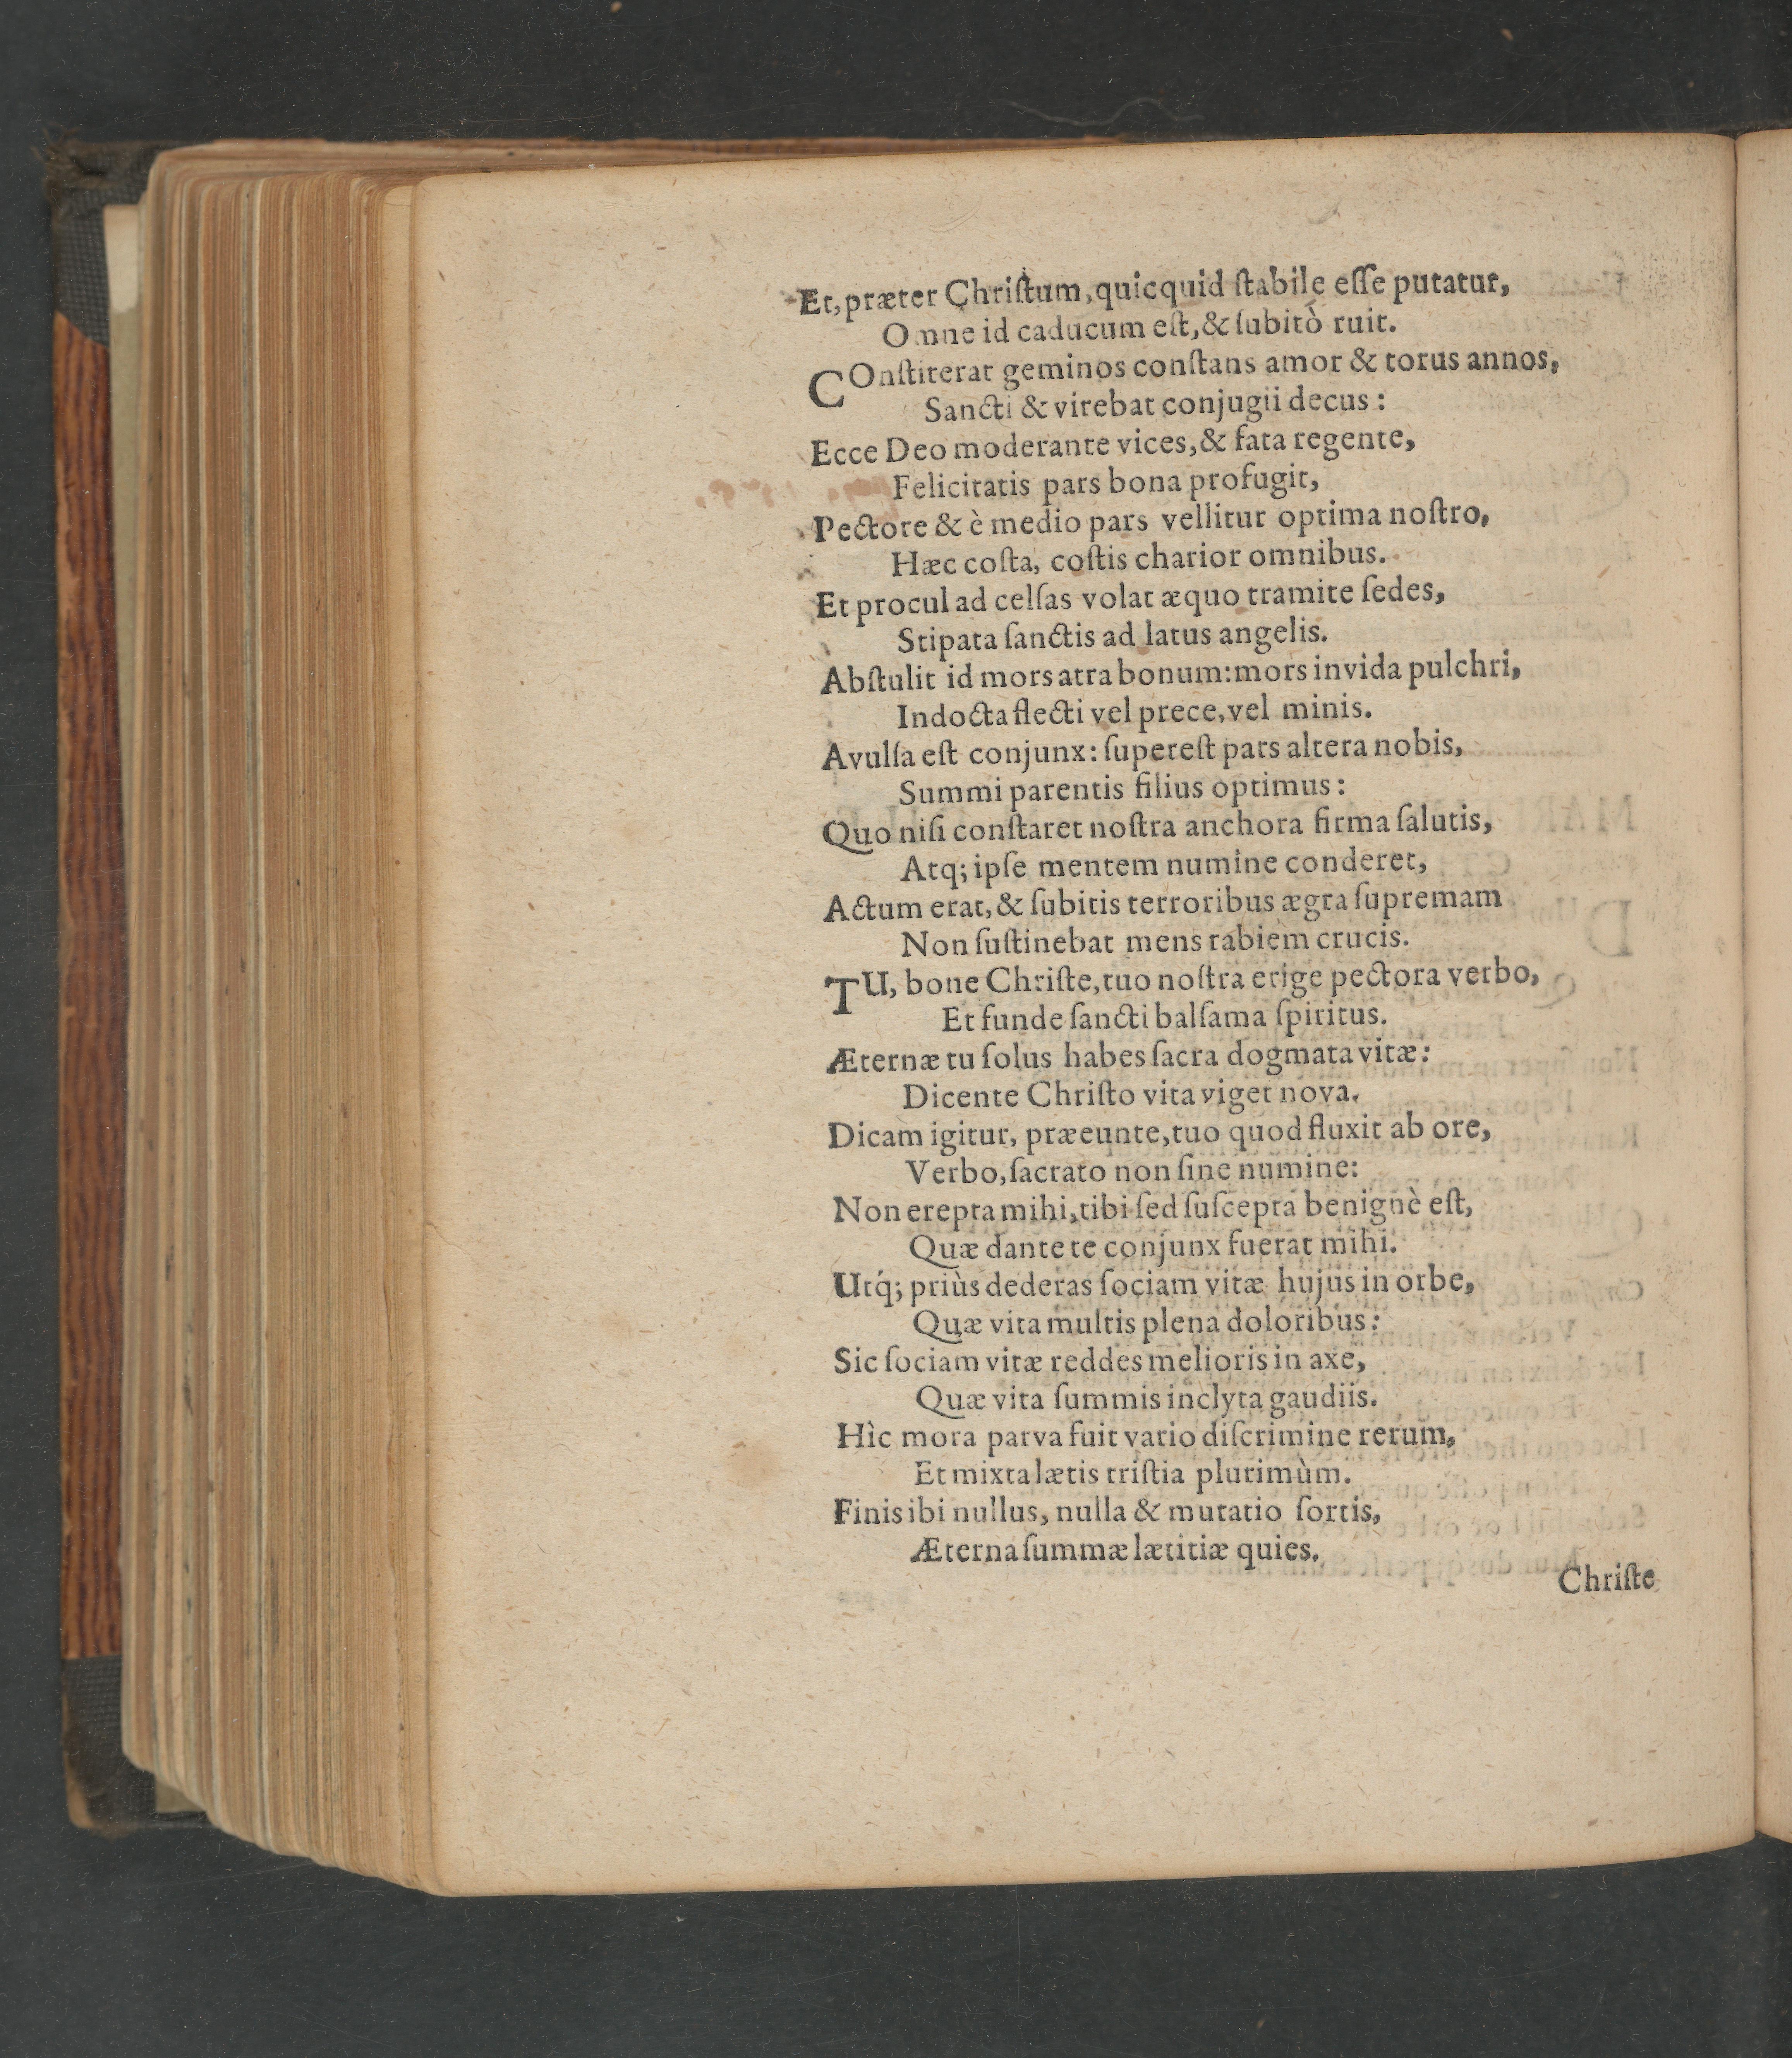 Et, præter Chriſtum, quicquid ſtabile eſſe putatur,
Omne id caducum eſt, & ſubitò ruit.
COnſtiterat geminos conſtans amor & torus annos,
Sancti & virebat conjugii decus:
Ecce Deo moderante vices, & fata regente,
Felicitatis pars bona profugit,
Pectore & è medio pars vellitur optima noſtro,
Hæc coſta, coſtis charior omnibus.
Et procul ad celſas volat æquo tramite ſedes,
Stipata ſanctis ad latus angelis.
Abſtulit id mors atra bonum: mors invida pulchri,
Indocta flecti vel prece, vel minis.
Avulſa eſt conjunx: ſupereſt pars altera nobis,
Summi parentis filius optimus:
Quo niſi conſtaret noſtra anchora firma ſalutis,
Atq; ipſe mentem numine conderet,
Actum erat, & ſubitis terroribus ægra ſupremam
Non ſuſtinebat mens rabiem crucis.
TU, bone Chriſte, tuo noſtra erige pectora verbo,
Et funde ſancti balſama ſpiritus.
Æternæ tu ſolus habes ſacra dogmata vitæ:
Dicente Chriſto vita viget nova.
Dicam igitur, præeunte, tuo quod fluxit ab ore,
Verbo, ſacrato non ſine numine:
Non erepta mihi, tibi ſed ſuſcepta benignè eſt,
Quæ dante te conjunx fuerat mihi.
Utq́; priùs dederas ſociam vitæ hujus in orbe,
Quæ vita multis plena doloribus:
Sic ſociam vitæ reddes melioris in axe,
Quæ vita ſummis inclyta gaudiis.
Hìc mora parva fuit vario diſcrimine rerum,
Et mixta lætis triſtia plurimùm.
Finis ibi nullus, nulla & mutatio ſortis,
Æterna ſummæ lætitiæ quies.
Chriſte